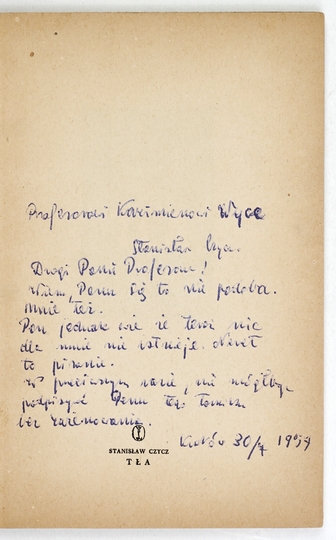 Profesorowi Kazimierzowi Wyce
Stanisław Czycz.
Drogi Panie Profesorze!
Wiem, Panu się to nie podoba.
Mnie też.
Pan jednak wie że teraz nic
dla mnie nie istnieje. Nawet
to pisanie.
W przeciwnym razie, nie mógłbym
podpisać Panu tego tomiku
bez zażenowania.
STANISŁAW CZYCZ
TŁA
Kraków 30/